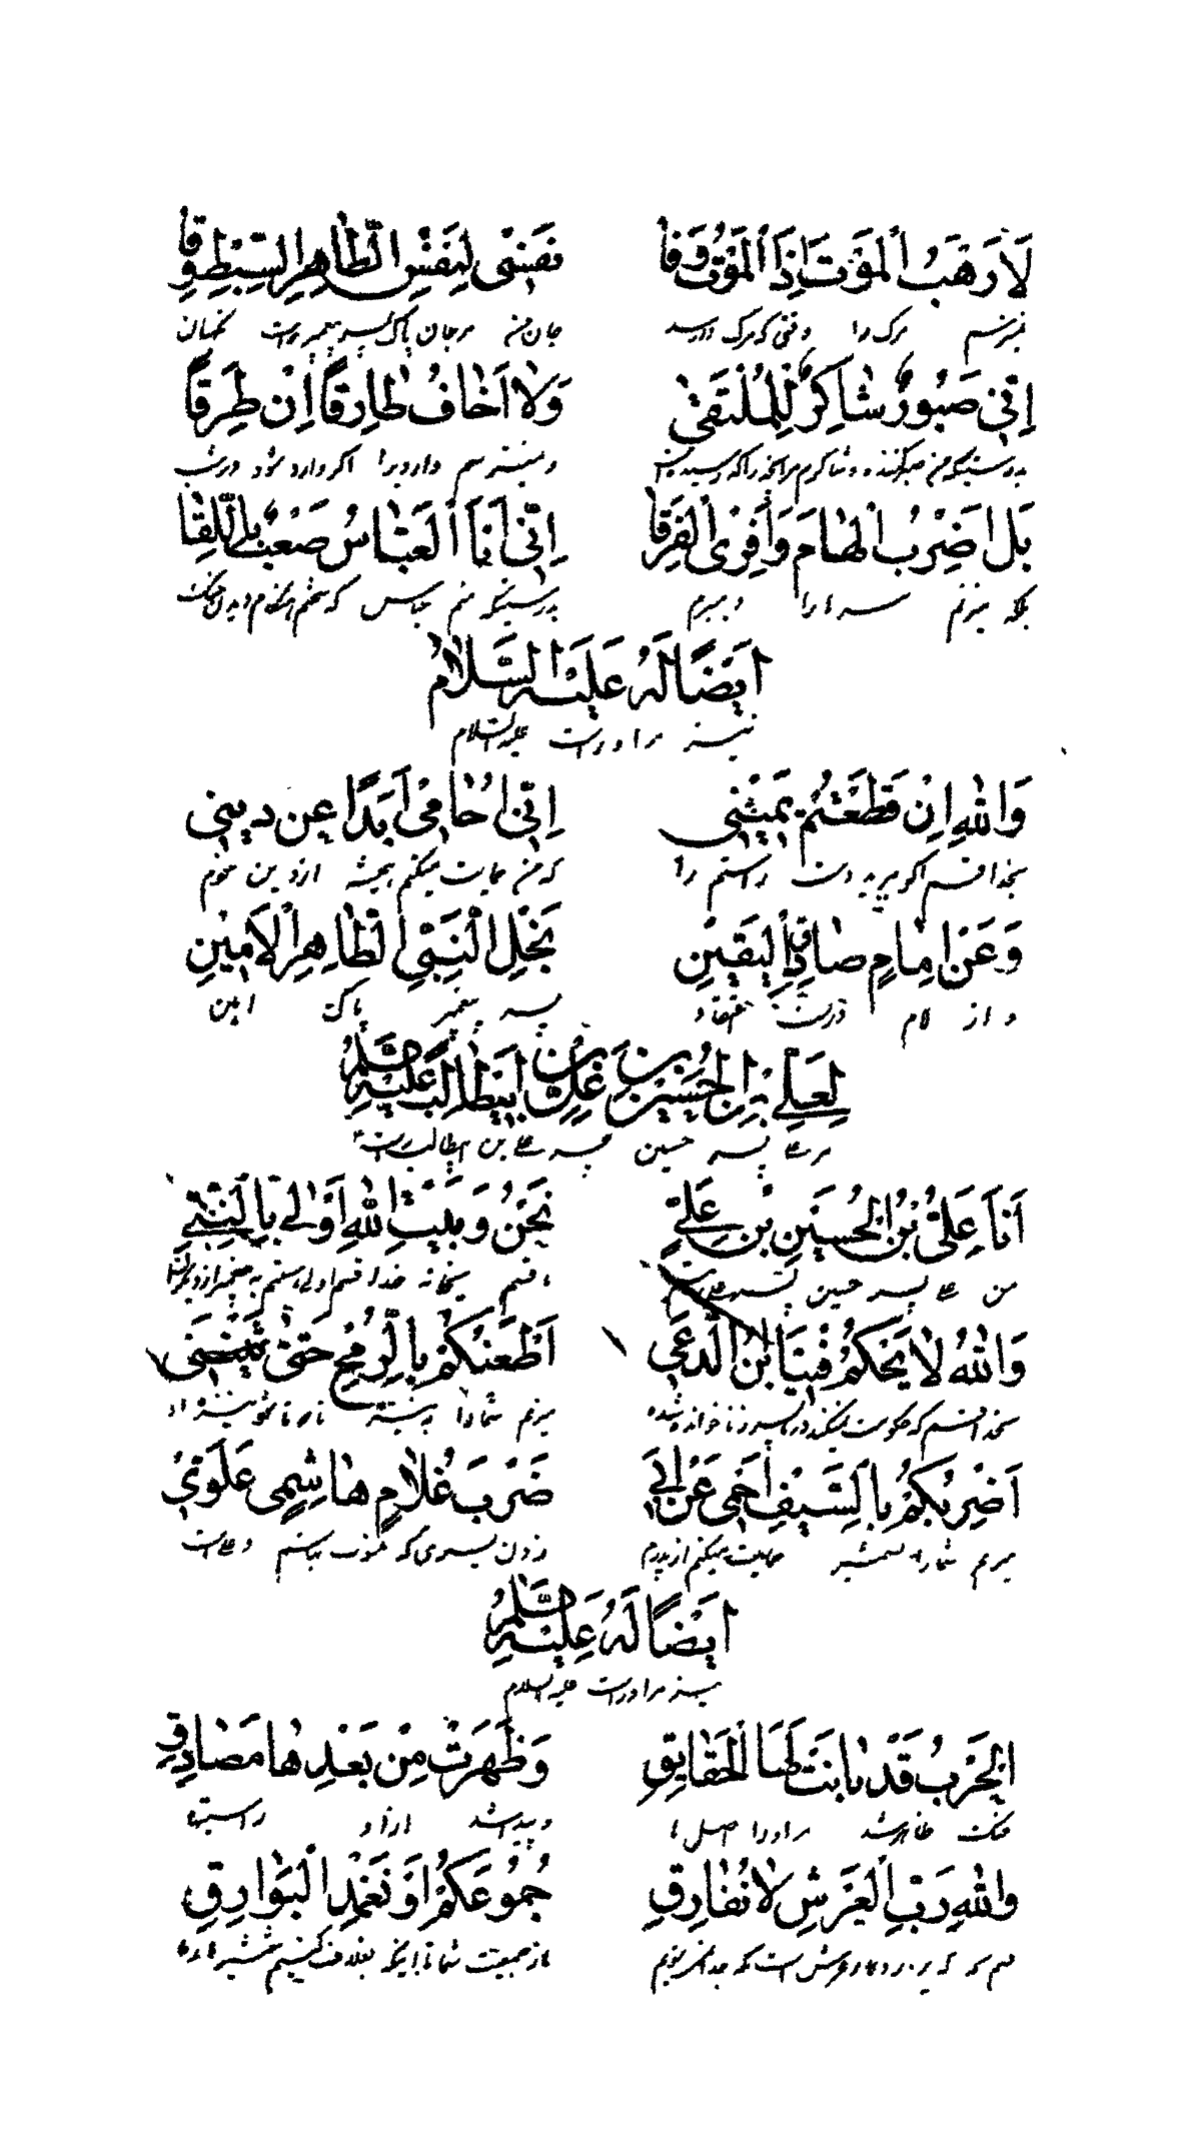 لَا اَرْهَبُ الْمَوْتَ اِذَا الْمَوْتُ وَفَا نَفْسِی لِنَفْسِ الطَّاهِرِ السِّبْطِ وِقَا
مرگ را وقتی که مرگ در رسد جان من مر جان پاک پسر پیغمبر راست نگهبان
اِنّی صَبُورٌ شَاکِرٌ لِلْمُلْتَقیٰ وَلَا اَخَافُ طَارِقًا اِنْ طَرَقَا
بدرستیکه من صبرکننده و شاکرم مر آنچه را که اگر وارد شود در شب
بَلْ اَضْرِبُ الْهَامَ وَاَفْرِی الْفَرِقَا اِنّی اَنَا الْعَبَّاسُ صَعْبٌ بِاللِّقَا
بلکه میزنم سرها را و میبرم بدرستیکه منم عباس که سختم هنگام دیدن جنگ
اَیْضًا لَهُ عَلَیْهِ السَّلَامُ
نیز مر او راست علیه السلام
وَاللهِ اِنْ قَطَعْتُمْ یَمِیْنِی اِنّی اُحَامِی اَبَدًا عَنْ دِیْنِی
بخدا قسم اگر ببرید دست راستم را که من حمایت میکنم همیشه از دین خودم
وَعَنْ اِمَامٍ صَادِقِ الْیَقِیْنِ نَجْلِ النَّبِیِّ الطَّاهِرِ الْاَمِیْنِ
و از امام درست اعتقاد پسر پیغمبر پاک امین
لِعَلِیِّ بْنِ الْحُسَیْنِ بْنِ عَلِیِّ بْنِ اَبِیْطَالِبٍ عَلَیْهِ السَّلَمُ
مر علی پسر حسین پسر علی بن ابیطالب راست
اَنَا عَلِیُّ بْنُ الْحُسَیْنِ بْنِ عَلِیٍّ نَحْنُ وَبَیْتِ اللهِ اَوْلیٰ بِالنَّبِیِّ
من علی پسر حسین پسر علی بخانه خدا قسم اولی هستیم به پیغمبر
وَاللهُ لَا یَحْکُمُ فِیْنَا ابْنُ الدَّعِیِّ اَطْعَنُکُمْ بِالرُّمْحِ حَتّیٰ یَنْثَنِی
بخدا قسم که حکومت نمیکند در ما پسر زنا خوانده شده میزنم شما را به نیزه تا
اَضْرِبُکُمْ بِالسَّیْفِ اَحْمِی عَنْ اَبِی ضَرْبَ غُلَامٍ هَاشِمِیٍّ عَلَوِیٍّ
میزنم شما را به شمشیر حمایت میکنم از پدرم زدن پسری که منسوب بهاشم و علی است
اَیْضًا لَهُ عَلَیْهِ السَّلَمُ
نیز مر او راست علیه السلام
الْحَرْبُ قَدْ بَانَتْ لَهَا الْحَقَایِقُ وَظَهَرَتْ مِنْ بَعْدِهَا مَصَادِقُ
جنگ ظاهر شد مر او را اصل ها و پدید شد از او راستیها
وَاللهِ رَبِّ الْعَرْشِ لَا نُفَارِقِ جُمُوعَکُمْ اَوْ تُغْمَدُ الْبَوَارِقُ
عرش است که جدا نمیشویم از جمعیت شما تا اینکه بغلاف کنیم شمشیرها را